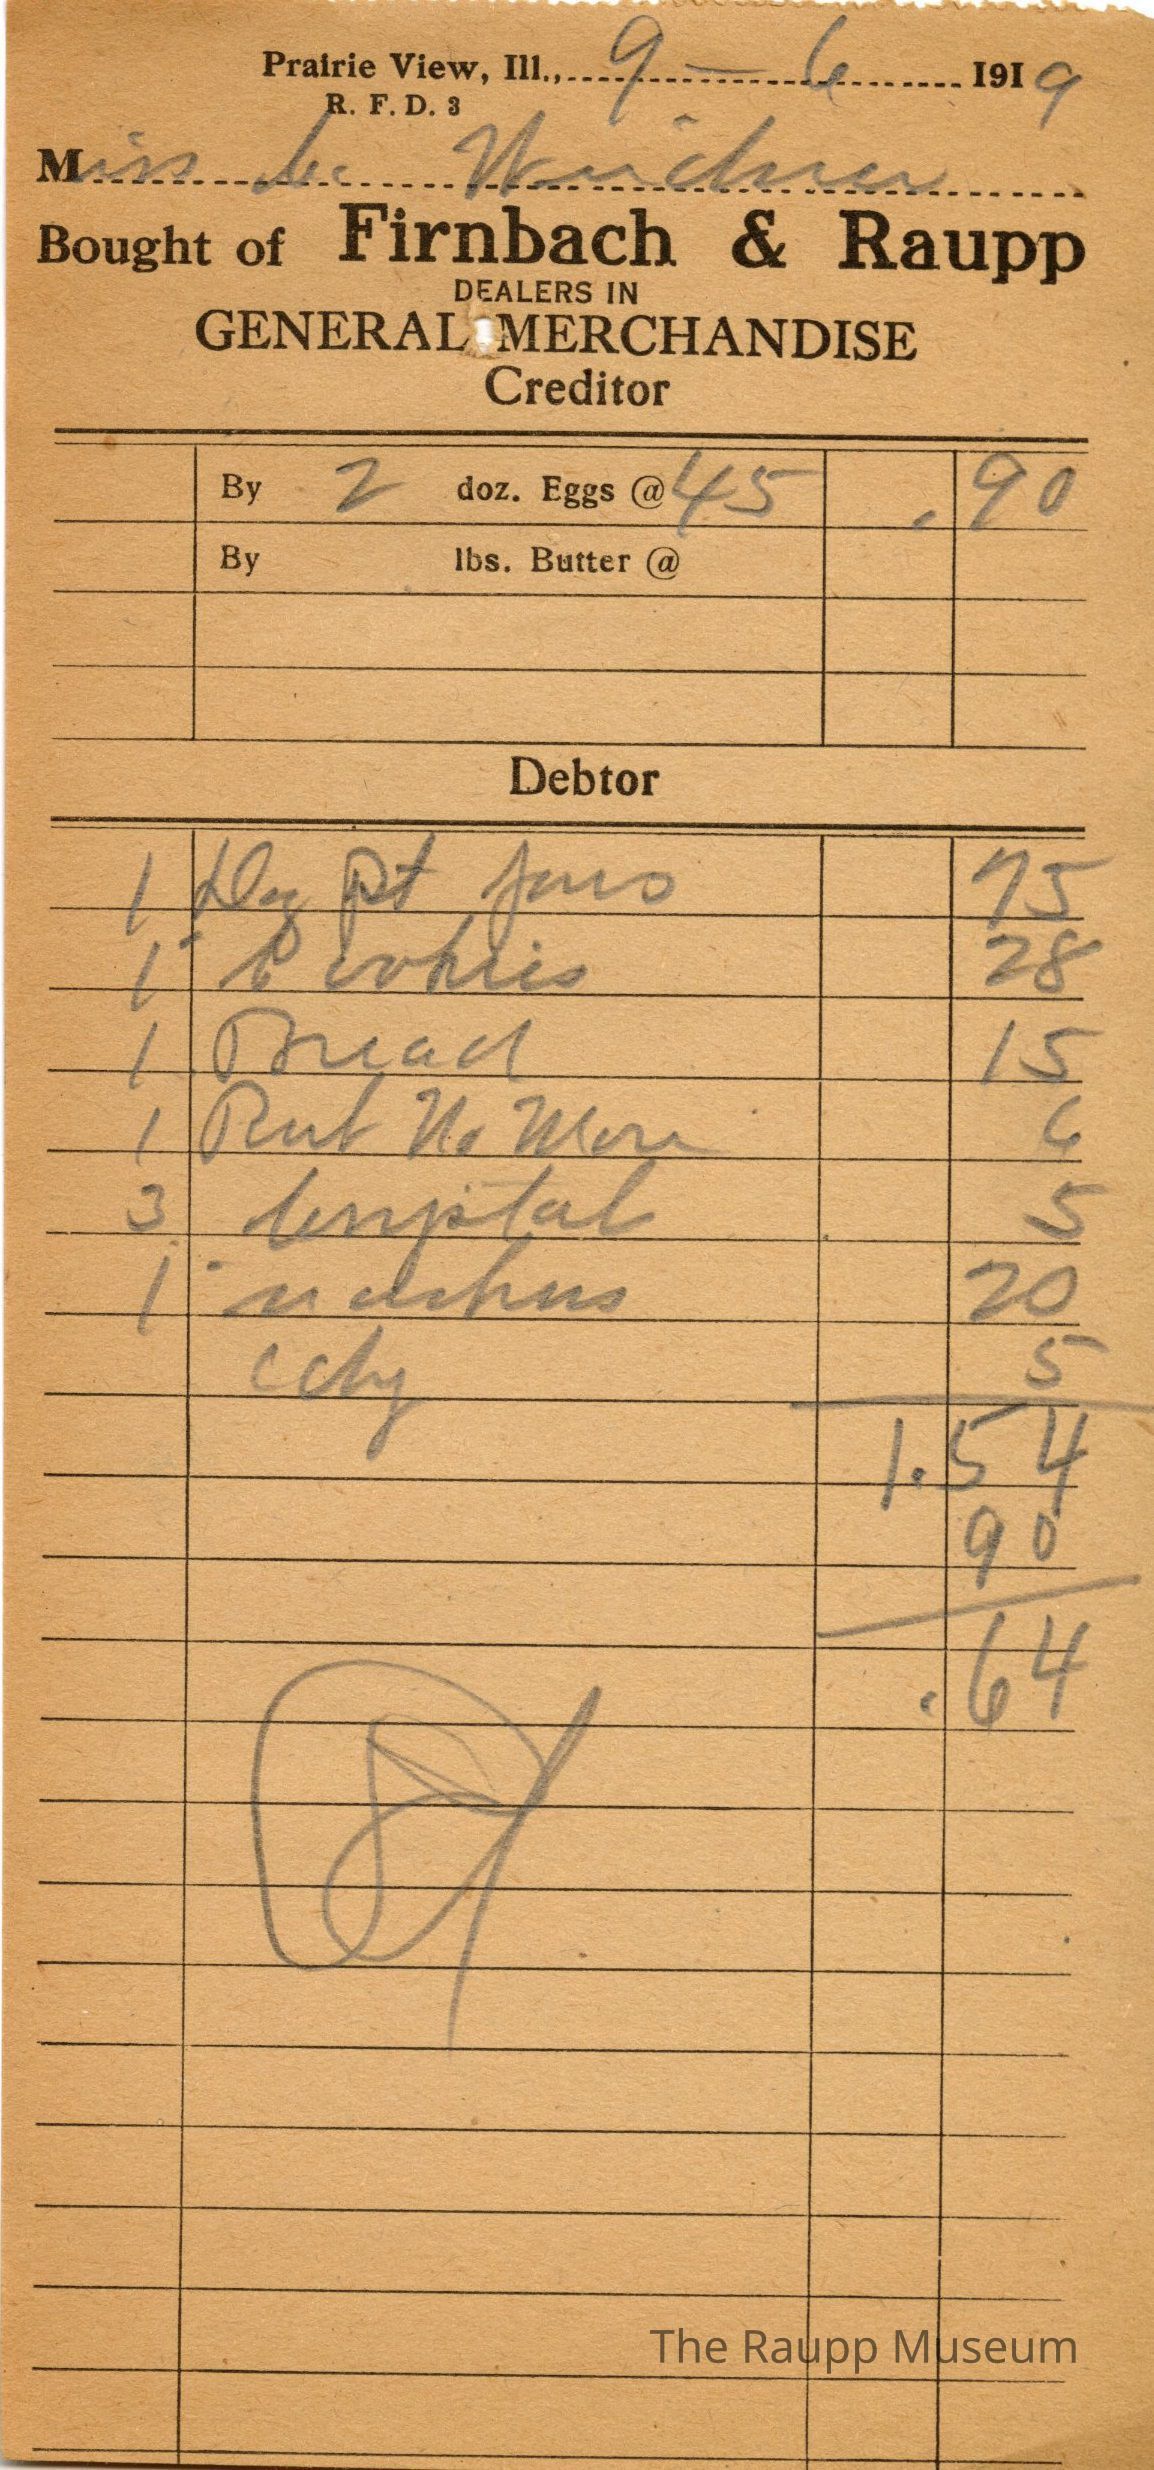 Prairie View, Ill., 9 - 6 1919
R. F. D. 3
Miss Weidner
Bought of Firnbach & Raupp
DEALERS IN
GENERAL MERCHANDISE
Creditor
By 2 doz. Eggs @ 45 .90
By lbs. Butter @
Debtor
1 Dz Pt Jars 75
1 Cookies 28
1 Bread 15
1 Rub No More 6
3 Crystal 5
1 20
cdy 5
1.54
90
.64
The Raupp Museum